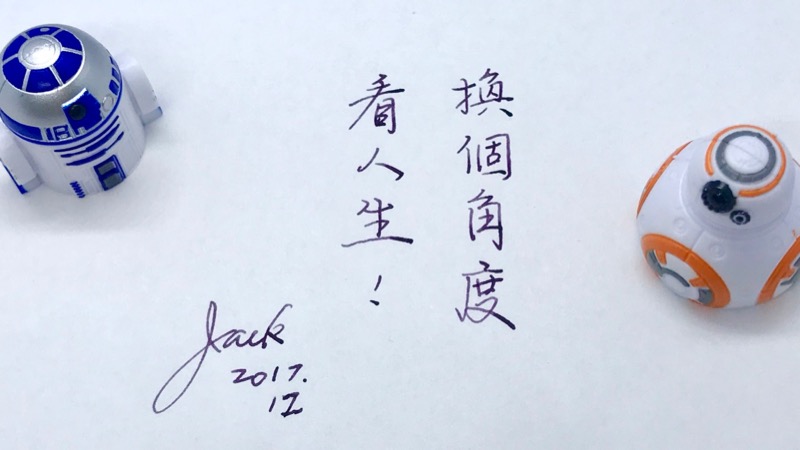 換個角度
看人生！
Jack
2017.
12